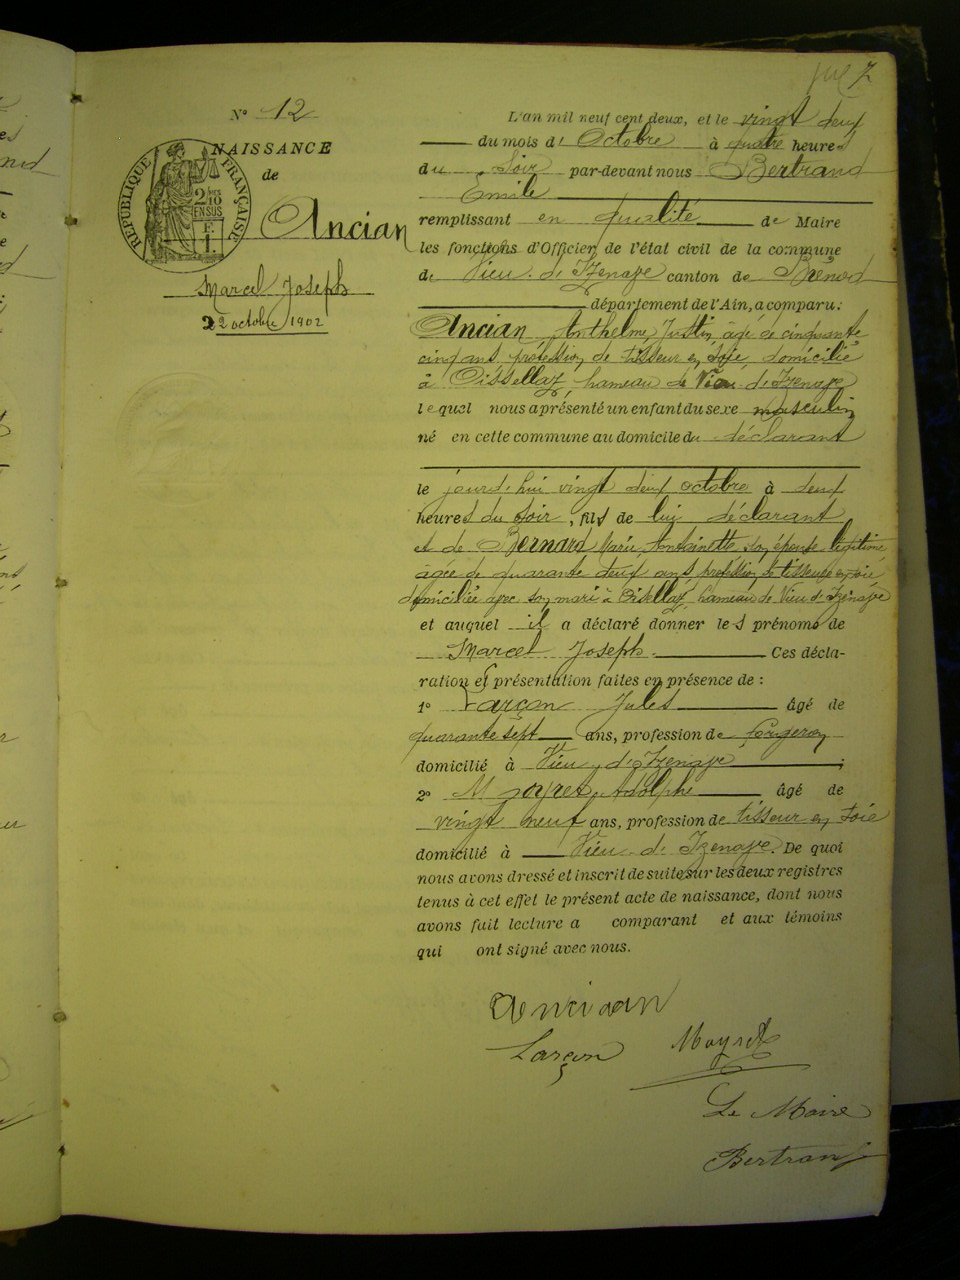 7
N° 12
NAISSANCE
de
RÉPUBLIQUE FRANÇAISE
2/10
EN SUS
F.
1.
Ancian
Marcel Joseph
22 octobre 1902
L'an mil neuf cent deux, et le vingt deux
du mois d' Octobre à quatre heures
du Soir par-devant nous Bertrand
Émile
remplissant en qualité de Maire
les fonctions d'Officier de l'état civil de la commune
de Vieu d'Izenave canton de Brénod
département de l'Ain, a comparu :
Ancian Anthelme Justin âgé de cinquante
cinq ans profession de tisseur en soie, domicilié
à Oissellaz, hameau de Vieu d'Izenave
lequel nous a présenté un enfant du sexe masculin
né en cette commune au domicile du déclarant
le jourd'hui vingt deux octobre à deux
heures du soir, fils de lui déclarant
et de Bernard Marie Antoinette son épouse légitime
âgée de quarante deux ans profession de tisseuse en soie
domiciliée avec son mari à Oisellaz hameau de Vieu d'Izenave
et auquel il a déclaré donner les prénoms de
Marcel Joseph. Ces décla-
ration et présentation faites en présence de :
1° Larçon Jules âgé de
quarante sept ans, profession de
domicilié à Vieu d'Izenave ;
2° Moyret Adolphe âgé de
vingt neuf ans, profession de tisseur en soie
domicilié à Vieu d'Izenave. De quoi
nous avons dressé et inscrit de suite sur les deux registres
tenus à cet effet le présent acte de naissance, dont nous
avons fait lecture a comparant et aux témoins
qui ont signé avec nous.
Ancian
Larçon Moyret
Le Maire
Bertrand